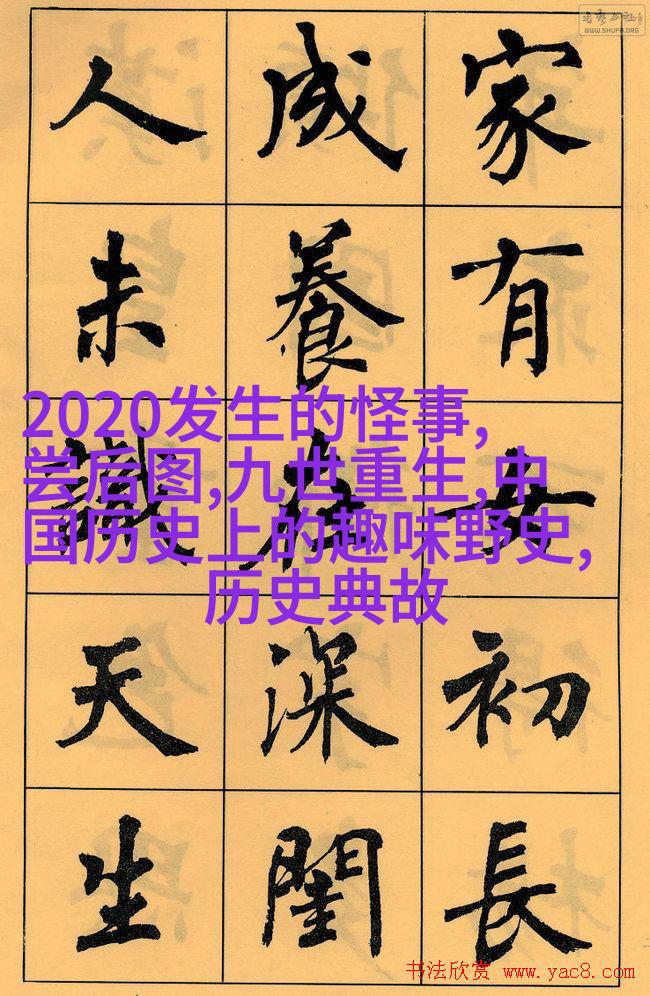 WWW.SHUFA.ORG
家有女初長
成養在深閨
人未識天生
2020发生的怪事,
尝后图,九世重生,中
国历史上的趣味野史,
历史典故
书法欣赏 www.yac8.com